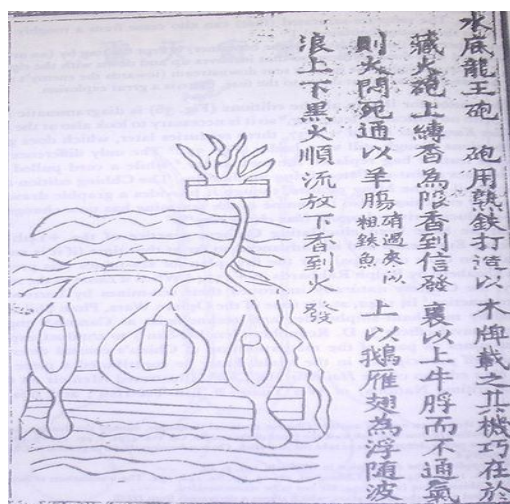 水底龍王砲 砲用熟鉄打造以木牌載之其機巧在於
藏火砲上縛香為限香到信發 裹以上牛脬而不通氣
則火悶死通以羊腸硝過夾以粗鉄魚 上以鵝雁翅為浮隨波
浪上下黑火順流放下香到火發